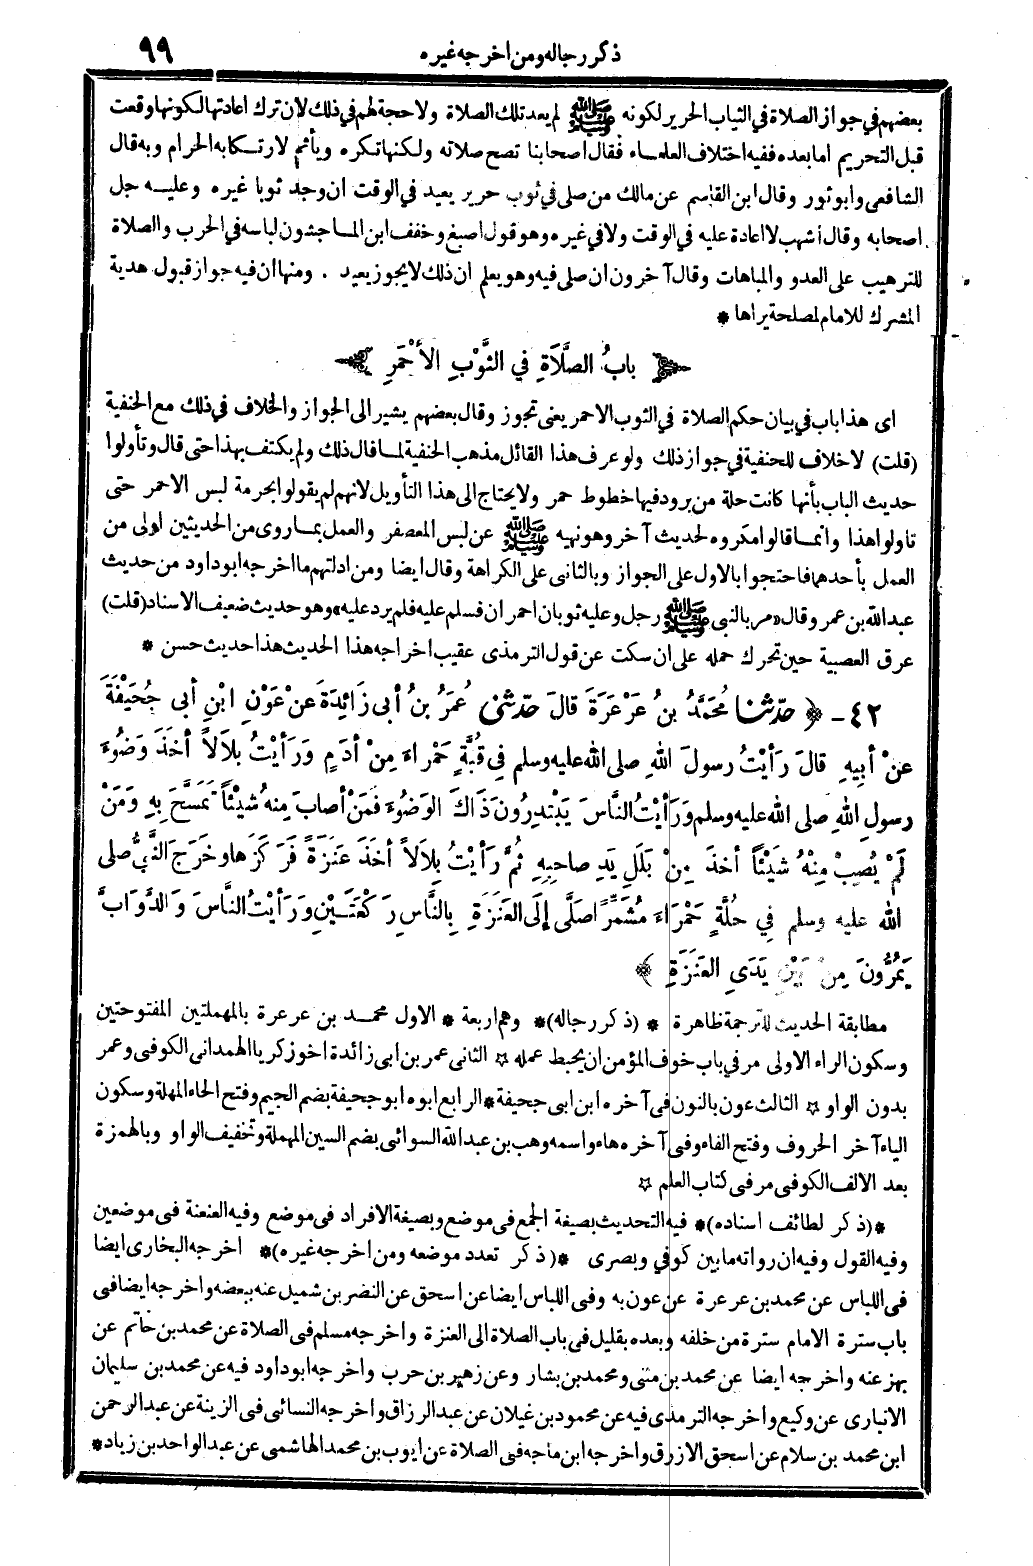 ذكر رجاله ومن اخرجه غيره
٩٩
بعضهم في جواز الصلاة في الثياب الحرير لكونه ﷺ لم يعد تلك الصلاة ولا حجة لهم في ذلك لان ترك اعادتها لكونها وقعت
قبل التحريم اما بعده ففيه اختلاف العلماء فقال اصحابنا تصح صلاته ولكنها تكره ويأثم لارتكابه الحرام وبه قال
الشافعي وابو ثور وقال ابن القاسم عن مالك من صلى في ثوب حرير يعيد في الوقت ان وجد ثوبا غيره وعليه جل
اصحابه وقال أشهب لا اعادة عليه في الوقت ولا في غيره وهو قول اصبغ وخفف ابن الماجشون لباسه في الحرب والصلاة
للترهيب على العدو والمباهات وقال آخرون ان صلى فيه وهو يعلم ان ذلك لا يجوز يعيد . ومنها ان فيه جواز قبول هدية
المشرك للامام لمصلحة يراها *
﴿ بابُ الصَّلَاةِ في الثَّوْبِ الأَحْمَرِ ﴾
اى هذا باب في بيان حكم الصلاة في الثوب الاحمر يعنى تجوز وقال بعضهم يشير الى الجواز والخلاف في ذلك مع الحنفية
(قلت) لا خلاف للحنفية في جواز ذلك ولو عرف هذا القائل مذهب الحنفية لما قال ذلك ولم يكتف بهذا حتى قال وتأولوا
حديث الباب بأنها كانت حلة من برود فيها خطوط حمر ولا يحتاج الى هذا التأويل لانهم لم يقولوا بحرمة لبس الاحمر حتى
تاولوا هذا وانما قالوا مكروه لحديث آخر وهو نهيه ﷺ عن لبس المعصفر والعمل بما روى من الحديثين اولى من
العمل بأحدهما فاحتجوا بالاول على الجواز وبالثانى على الكراهة وقال ايضا ومن ادلتهم ما اخرجه ابو داود من حديث
عبد الله بن عمرو قال «مر بالنبى ﷺ رجل وعليه ثوبان احمران فسلم عليه فلم يرد عليه» وهو حديث ضعيف الاسناد (قلت)
عرق العصبية حين تحرك حمله على ان سكت عن قول الترمذى عقيب اخراجه هذا الحديث هذا حديث حسن *
٤٢ - ﴿ حدّثنا مُحَمَّدُ بنُ عَرْعَرَةَ قالَ حدّثنى عُمَرُ بنُ أبى زَائِدَةَ عنْ عَوْنِ ابْنِ أبى جُحَيْفَةَ
عنْ أبيهِ قالَ رَأيْتُ رسولَ اللهِ صلى الله عليه وسلم فِي قُبَّةٍ حَمْراءَ مِنْ أدَمٍ وَرَأيْتُ بِلاَلاً أخَذَ وَضُوءَ
رسولِ اللهِ صلى الله عليه وسلم وَرَأيْتُ النَّاسَ يَبْتَدِرُونَ ذَاكَ الوَضُوءَ فَمَنْ أصابَ مِنهُ شَيْئاً تَمَسَّحَ بِهِ وَمَنْ
لَمْ يُصِبْ مِنْهُ شَيْئاً أخَذَ مِنْ بَلَلِ يَدِ صاحِبِهِ ثُمَّ رَأيْتُ بِلاَلاً أخَذَ عَنَزَةً فَرَكَزَها وخَرَجَ النَّبِيُّ صلى
الله عليه وسلم في حُلَّةٍ حَمْرَاءَ مُشَمِّرًا صَلَّى إلَى العَنَزَةِ بِالنَّاسِ رَكْعَتَيْنِ وَرَأيْتُ النَّاسَ وَالدَّوَابَّ
يَمُرُّونَ مِنْ بَيْنِ يَدَىِ العَنَزَةِ ﴾
مطابقة الحديث للترجمة ظاهرة * (ذكر رجاله) * وهم اربعة * الاول محمد بن عرعرة بالمهملتين المفتوحتين
وسكون الراء الاولى مر في باب خوف المؤمن ان يحبط عمله ☆ الثانى عمر بن ابى زائدة اخو زكريا الهمدانى الكوفى وعمر
بدون الواو ☆ الثالث عون بالنون فى آخره ابن ابى جحيفة * الرابع ابوه ابو جحيفة بضم الجيم وفتح الحاء المهملة وسكون
الياء آخر الحروف وفتح الفاء وفى آخره هاء واسمه وهب بن عبد الله السوائى بضم السين المهملة وتخفيف الواو وبالهمزة
بعد الالف الكوفى مر فى كتاب العلم ☆
* (ذكر لطائف اسناده) * فيه التحديث بصيغة الجمع فى موضع وبصيغة الافراد فى موضع وفيه العنعنة فى موضعين
وفيه القول وفيه ان رواته ما بين كوفي وبصرى * (ذكر تعدد موضعه ومن اخرجه غيره) * اخرجه البخارى ايضا
فى اللباس عن محمد بن عرعرة عن عون به وفى اللباس ايضا عن اسحق عن النضر بن شميل عنه ببعضه واخرجه ايضا فى
باب سترة الامام سترة من خلفه وبعده بقليل فى باب الصلاة الى العنزة واخرجه مسلم فى الصلاة عن محمد بن حاتم عن
بهز عنه واخرجه ايضا عن محمد بن مثنى ومحمد بن بشار وعن زهير بن حرب واخرجه ابو داود فيه عن محمد بن سليمان
الانبارى عن وكيع واخرجه الترمذى فيه عن محمود بن غيلان عن عبد الرزاق واخرجه النسائى فى الزينة عن عبد الرحمن
ابن محمد بن سلام عن اسحق الازرق واخرجه ابن ماجه فى الصلاة عن ايوب بن محمد الهاشمى عن عبد الواحد بن زياد *